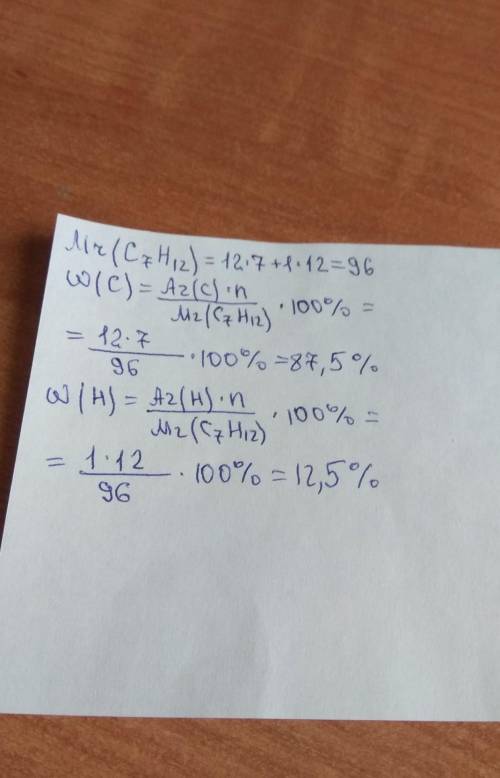 Mr(C₇H₁₂)=12·7+1·12=96
ω(C)=Ar(C)·n/Mr(C₇H₁₂)·100%=
=12·7/96·100%=87,5%
ω(H)=Ar(H)·n/Mr(C₇H₁₂)·100%=
=1·12/96·100%=12,5%